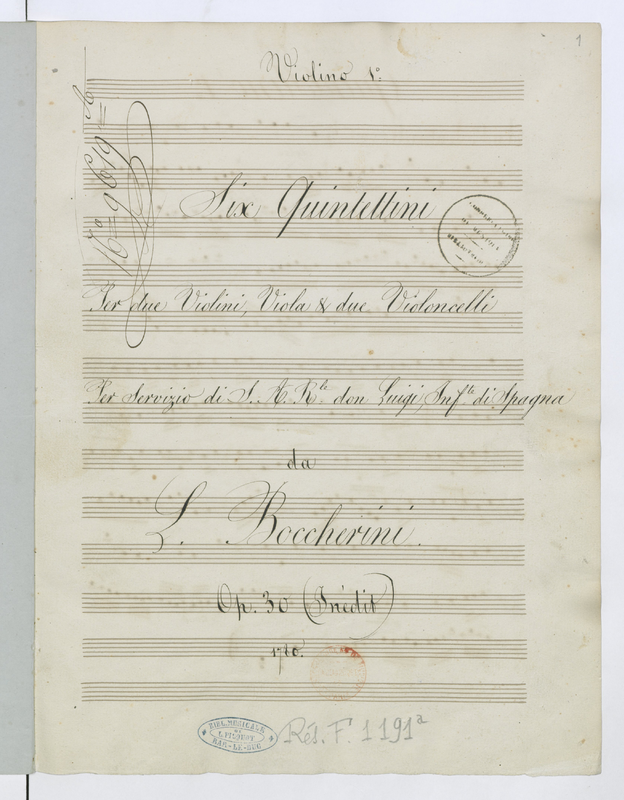 1
Violino 1º
Six Quintettini
Per due Violini, Viola & due Violoncelli
Per Servizio di S. A. Rle don Luigi, Infte di Spagna
da
L. Boccherini.
Op. 30 (Inédit)
BIBL. MUSICALE
DE
L. FILOËUT
BAR-LE-DUC
Rés. F. 1191a